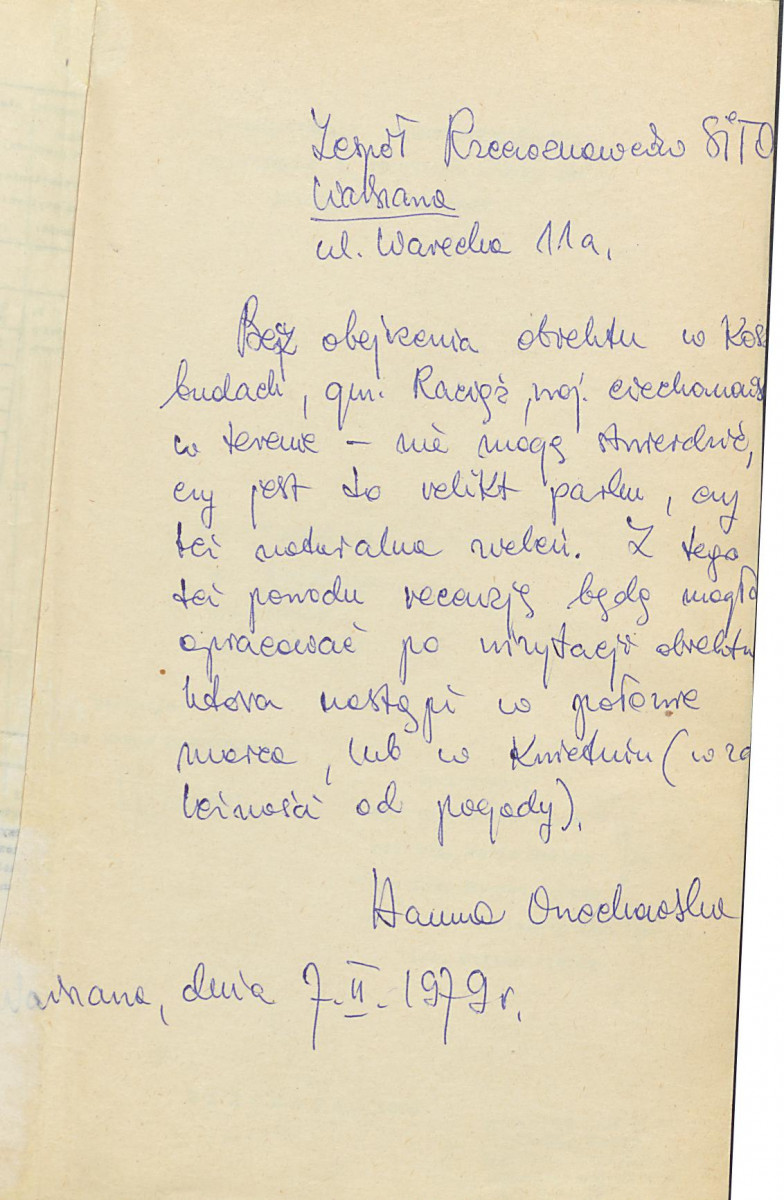 Zespół Rzeczoznawców SITO
Warszawa
ul. Warecka 11a.
Bez obejrzenia obiektu w Kos
budach, gm. Raciąż, woj. ciechanows
w terenie – nie mogę stwierdzić,
czy jest to relikt parku, czy
też naturalna zieleń. Z tego
też powodu recenzję będę mogła
opracować po wizytacji obiektu
która nastąpi w połowie
marca, lub w kwietniu (w za
leżności od pogody).
Hanna
Warszawa, dnia 7.II.1979 r.